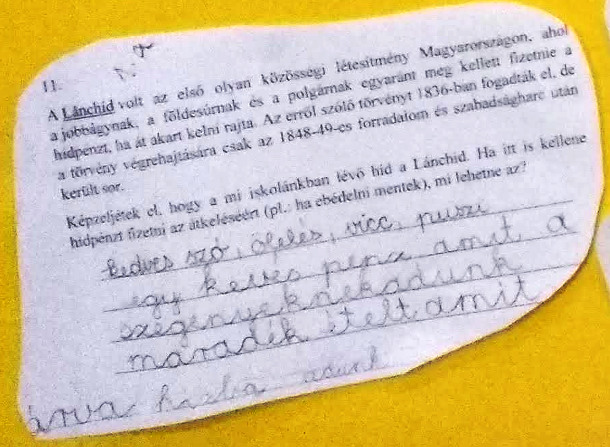 11.
A Lánchíd volt az első olyan közösségi létesítmény Magyarországon, ahol
a jobbágynak, a földesúrnak és a polgárnak egyaránt meg kellett fizetnie a
hídpénzt, ha át akart kelni rajta. Az erről szóló törvényt 1836-ban fogadták el, de
a törvény végrehajtására csak az 1848-49-es forradalom és szabadságharc után
került sor.
Képzeljétek el, hogy a mi iskolánkban lévő híd a Lánchíd. Ha itt is kellene
hídpénzt fizetni az átkelésért (pl.: ha ebédelni mentek), mi lehetne az?
kedves szó, ölelés, vicc, puszi
egy keves penz amit a
szegényeknek adunk
maradék ételt amit
árva házba adunk